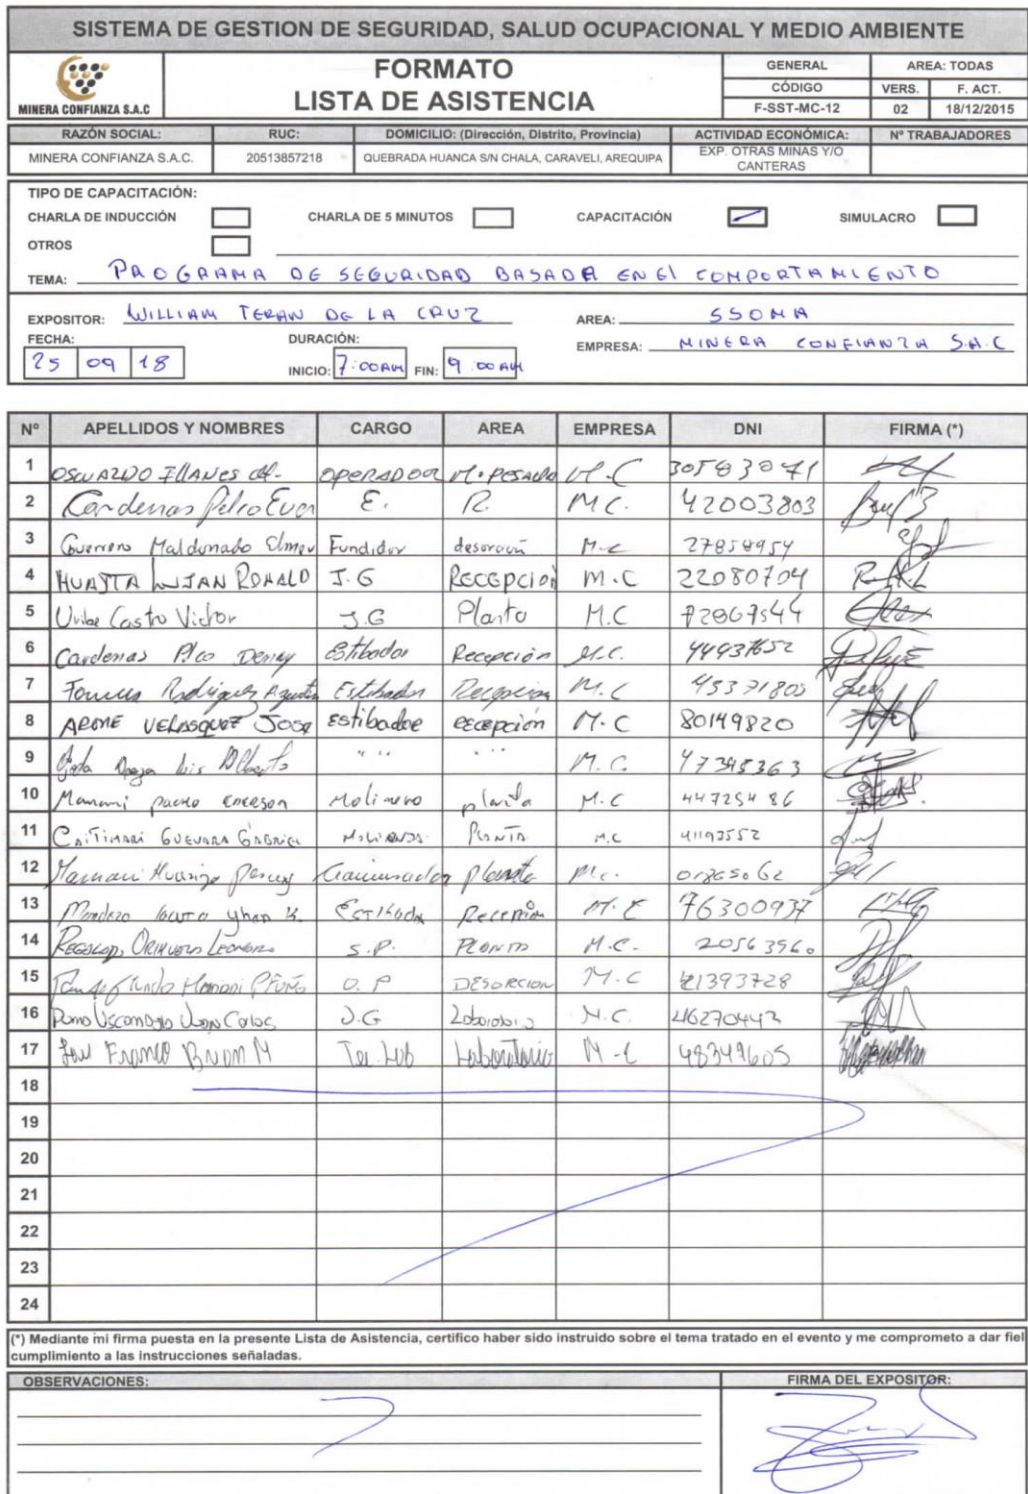 SISTEMA DE GESTION DE SEGURIDAD, SALUD OCUPACIONAL Y MEDIO AMBIENTE
MINERA CONFIANZA S.A.C
FORMATO
LISTA DE ASISTENCIA
GENERAL AREA: TODAS
CÓDIGO VERS. F. ACT.
F-SST-MC-12 02 18/12/2015
RAZÓN SOCIAL: RUC: DOMICILIO: (Dirección, Distrito, Provincia) ACTIVIDAD ECONÓMICA: Nº TRABAJADORES
MINERA CONFIANZA S.A.C. 20513857218 QUEBRADA HUANCA S/N CHALA, CARAVELI, AREQUIPA EXP. OTRAS MINAS Y/O CANTERAS
TIPO DE CAPACITACIÓN:
CHARLA DE INDUCCIÓN CHARLA DE 5 MINUTOS CAPACITACIÓN SIMULACRO
OTROS
TEMA: PROGRAMA DE SEGURIDAD BASADA EN El COMPORTAMIENTO
EXPOSITOR: WILLIAM TERAN DE LA CRUZ AREA: SSOMA
FECHA: DURACIÓN: EMPRESA: MINERA CONFIANZA S.A.C
25 09 18 INICIO: 7:00AM FIN: 9:00AM
Nº APELLIDOS Y NOMBRES CARGO AREA EMPRESA DNI FIRMA (*)
1 OSWALDO IllANES OPERADOR M. PESADO M.C
2 Cardenas Euer E. R. M.C. 42003803
3 Guerrero Maldonado Elmer Fundidor desorción M.C 27858954
4 HUAJTA LUJAN RONALD J.G Recepcion M.C 22080704
5 Uribe Castro Victor J.G Planta M.C 72867544
6 Cardenas Estibador Recepción M.C. 44937652
7 Rodriguez Agustin Estibador Recepcion M.C 45371805
8 VELASQUEZ Jose Estibador Recepción M.C 80149820
9 Luis Alberto " " " " M.C. 47345363
10 Mamani emerson Molinero planta M.C 44725486
11 GUEVARA GABRIEL PLANTA M.C 41193552
12 Mamani M.C.
13 Yhon K. Estibador Recepción M.C 76300937
14 S.P. PLANTA M.C.
15 Mamani O. P DESORCION M.C 41393728
16 Juan Carlos J.G Laboratorio M.C. 46270442
17 Franco Laboratorio M.C 48349605
18
19
20
21
22
23
24
(*) Mediante mi firma puesta en la presente Lista de Asistencia, certifico haber sido instruido sobre el tema tratado en el evento y me comprometo a dar fiel
cumplimiento a las instrucciones señaladas.
OBSERVACIONES: FIRMA DEL EXPOSITOR: